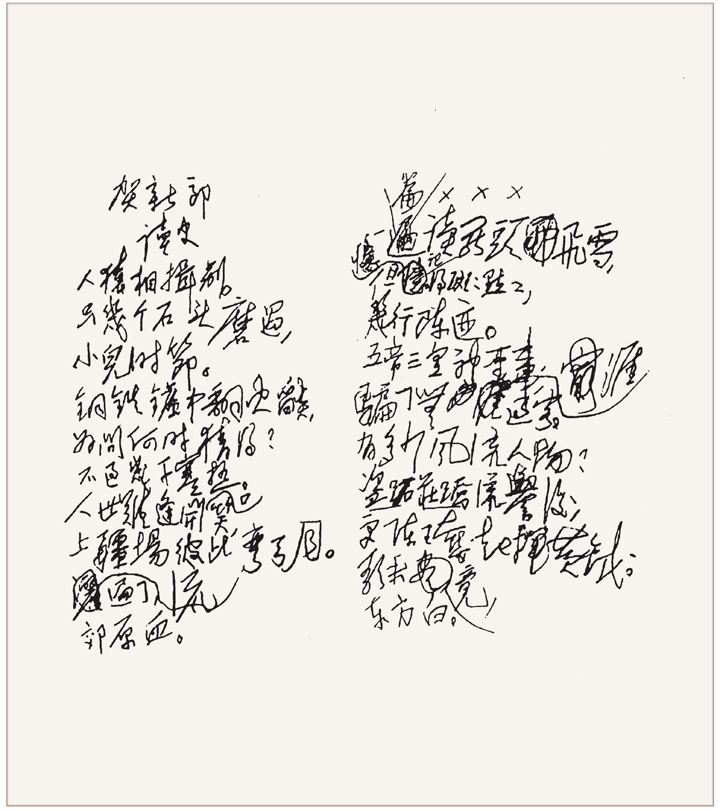 贺新郎
读史
人猿相揖别。
只幾个石头磨过,
小兒时節。
铜铁爐中翻火焰,
为问何时猜得?
不过幾千寒热。
人世难逢開口笑,
上疆場彼此弯弓月。
流遍了,
郊原血。
篇 × × ×
一篇读罢頭飞雪,
但记得斑斑点点,
幾行陈迹。
五帝三皇神圣事,
骗了無涯过客。
有多少风流人物?
盗跖莊蹻流譽後,
更陈王奮起挥黄钺。
歌未竟,
东方白。